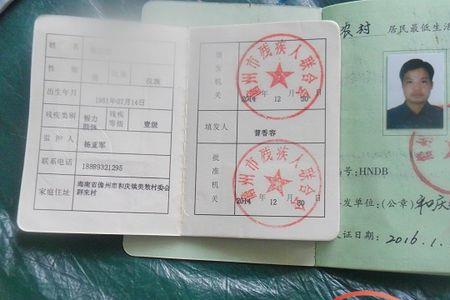 姓名
性别
民族
汉族
出生年月
1981年07月14日
残疾类别
智力
残疾
等级
壹级
监护人
杨亚军
联系电话
18889321295
家庭住址
海南省儋州市和庆镇美敖村委会
群来村
颁发机关
儋州市残疾人联合会
2014年12月30日
填发人
曾香容
批准机关
儋州市残疾人联合会
2014年12月30日
农村
居民最低生活
号:HNDB
发单位:(公章)和庆
证日期:2016.1.